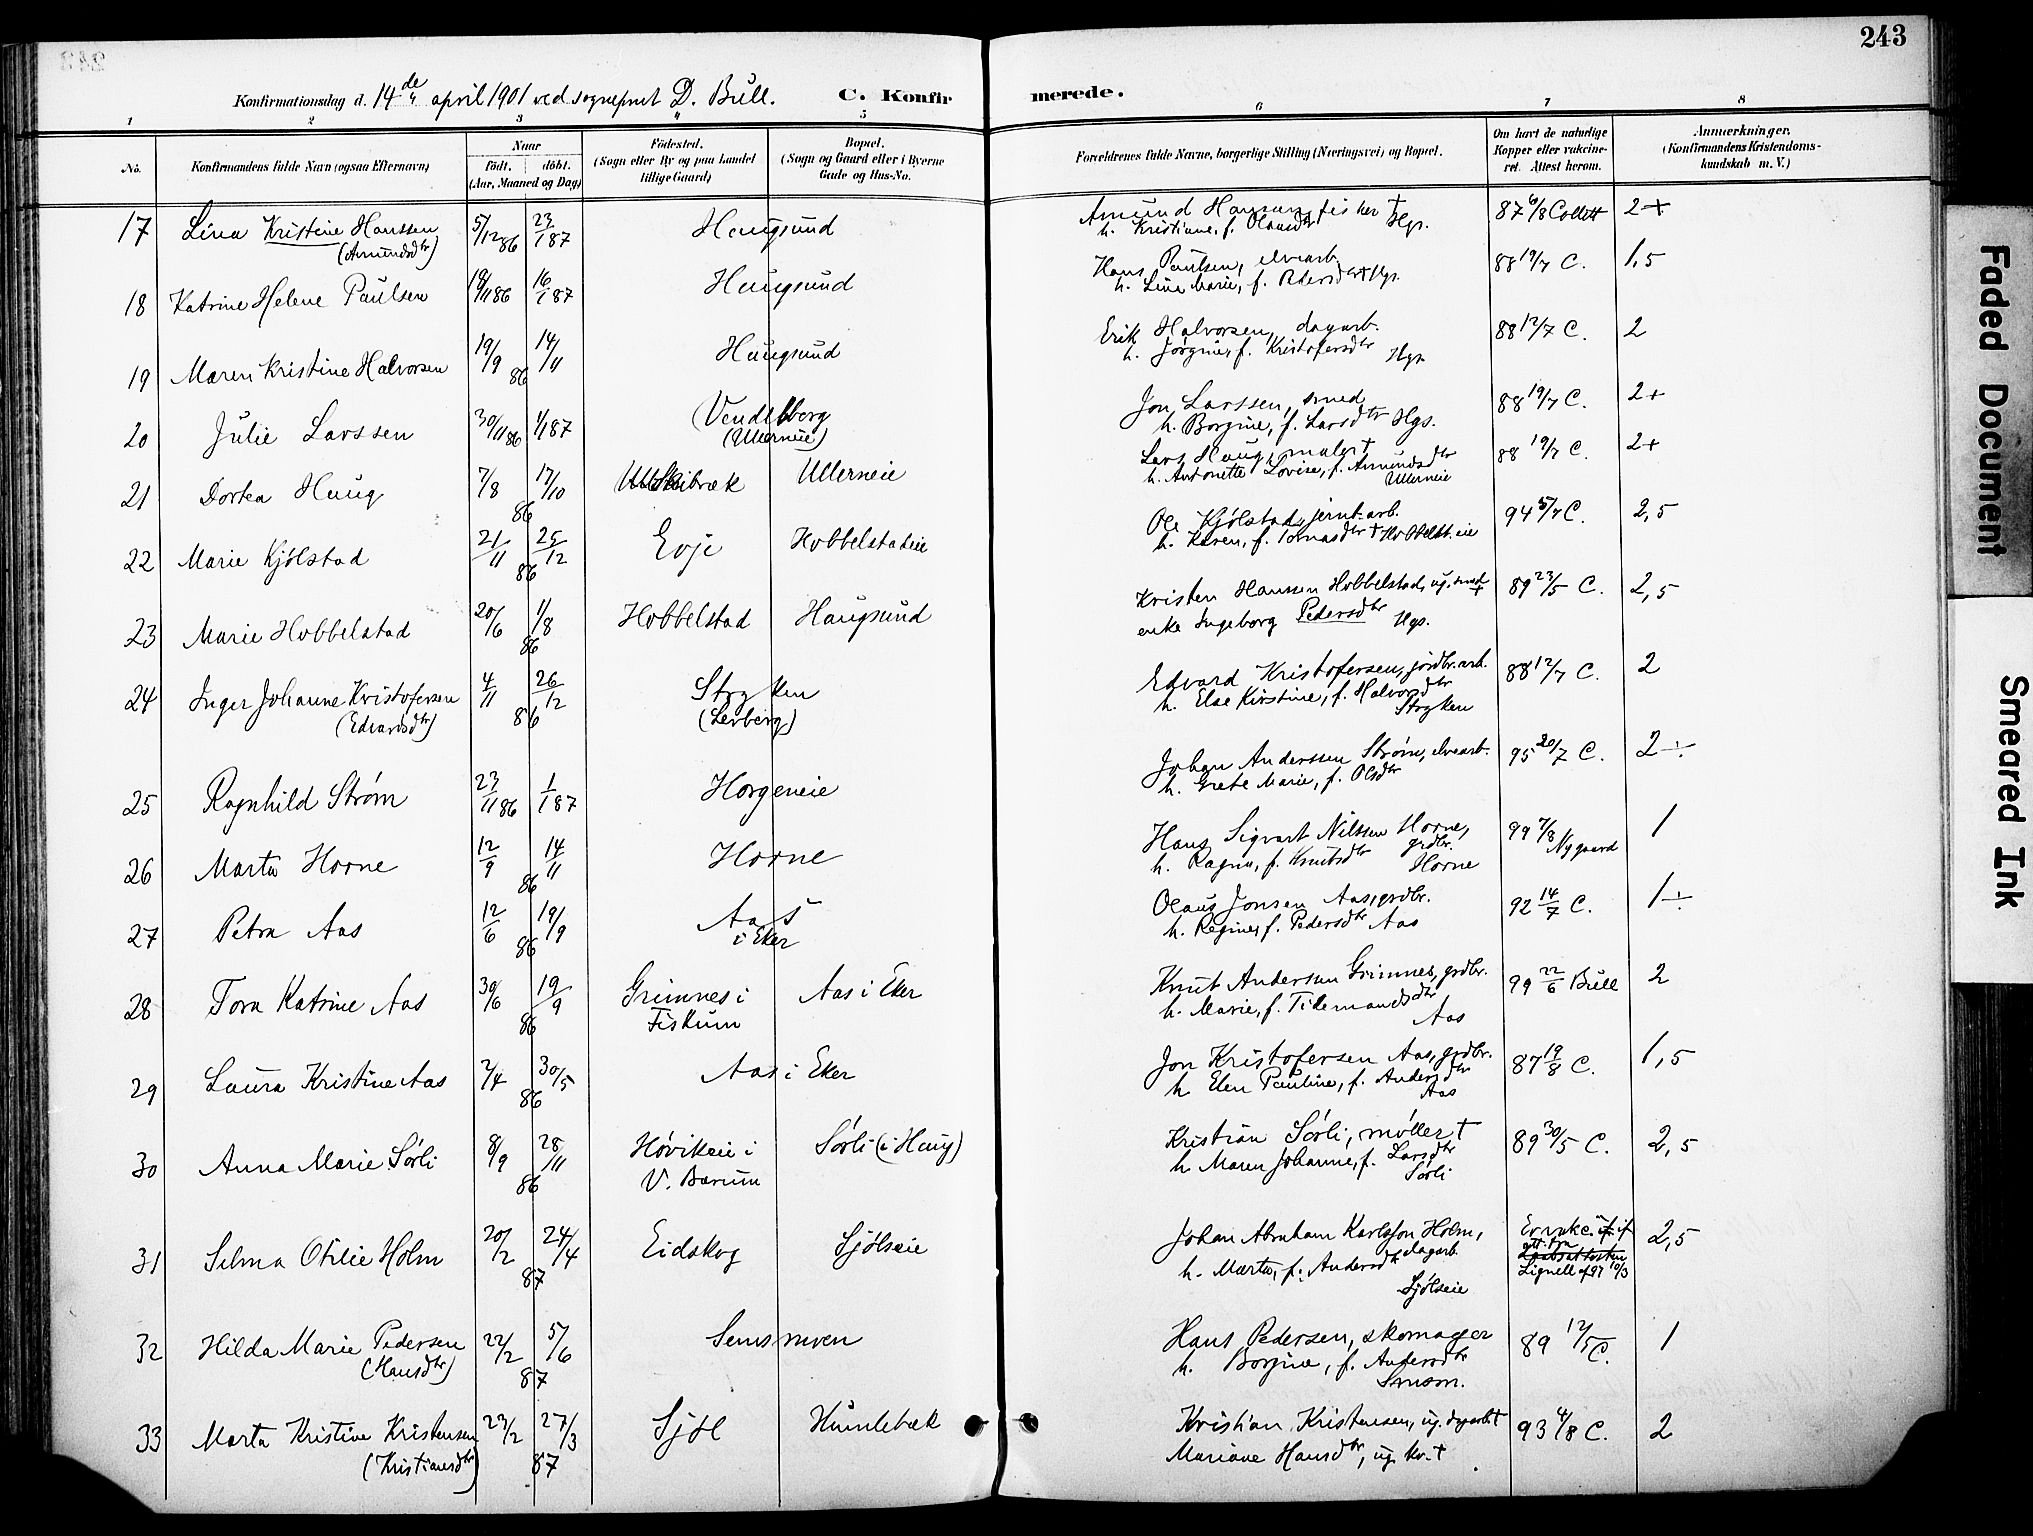 243
Konfirmationsdag d. 14de april 1901 ved sogneprest D. Bull. C. Konfir merede.
1 2 3 4 5 6 7 8
No. Konfirmandens fulde Navn (ogsaa Efternavn) Naar Födt. döbt. (Aar, Maaned og Dag) Födested. (Sogn eller By og paa Landet tillige Gaard) Bopæl. (Sogn og Gaard eller i Byerne Gade og Hus-No. Forældrenes fulde Navne, borgerlige Stilling (Næringsvei) og Bopæl. Om havt de naturlige Kopper eller vakcineret. Attest herom. Anmærkninger. (Konfirmandens Kristendomskundskab m. V.)
17 Lina Kristine Hanssen (Amundsdtr) 5/12 86 23/1 87 Haugsund Amund Hansen, fisker † h. Kristiane, f. Olausdtr Hgs. 87 6/8 Collett 2+
18 Katrine Helene Paulsen 19/11 86 16/1 87 Haugsund Hans Paulsen, elvearb. h. Lina Marie, f. Pedersdtr Hgs. 88 19/7 C. 1,5
19 Maren Kristine Halvorsen 19/9 14/11 86 Haugsund Erik Halvorsen, dagarb. h. Jørgine, f. Kristofersdtr Hgs. 88 12/7 C. 2
20 Julie Larssen 30/11 86 1/1 87 (Ullerneie) Jon Larssen, smed h. Borgine, f. Larsdtr Hgs. 88 19/7 C. 2+
21 Dortea Haug 7/8 17/10 86 Skibræk Ullerneie Lars Haug, maler † h. Antonette Lovise, f. Amundsdtr Ullerneie 88 19/7 C. 2+
22 Marie Kjølstad 21/11 25/12 86 Evje Hobbelstadeie Ole Kjølstad, jernb.arb. h. Karen, f. Tomasdtr † Hobbelst.eie 94 5/7 C. 2,5
23 Marie Hobbelstad 20/6 1/8 86 Hobbelstad Haugsund Kristen Hanssen Hobbelstad, ug. smed † enke Ingeborg Pedersdtr Hgs. 89 23/5 C. 2,5
24 Inger Johanne Kristofersen (Edvardsdtr) 4/11 26/12 86 Stryken (Lerberg) Edvard Kristofersen, jordbr.arb. h. Else Kirstine, f. Halvorsdtr Stryken 88 12/7 C. 2
25 Ragnhild Strøm 23/11 86 1/1 87 Horgeneie Johan Anderssen Strøm, elvearb. h. Grete Marie, f. Olsdtr 95 20/7 C. 2÷
26 Marta Horne 12/9 14/11 86 Horne Hans Sigvart Nilssen Horne, grdbr. h. Ragna, f. Knutsdtr Horne 99 7/8 Nygaard 1
27 Petra Aas 12/6 19/9 86 Aas i Eker Olaus Jonsen Aas, grdbr. h. Regine, f. Pedersdtr Aas 92 14/7 C. 1÷
28 Tora Katrine Aas 30/6 19/9 86 Grimnes i Fiskum Aas i Eker Knut Andersen Grimnes, grdbr. h. Marie, f. Tidemandsdtr Aas 99 22/6 Bull 2
29 Laura Kristine Aas 2/4 30/5 86 Aas i Eker Jon Kristofersen Aas, grdbr. h. Elen Pauline, f. Andersdtr Aas 87 19/8 C. 1,5
30 Anna Marie Sørli 8/9 28/11 86 Høvikeie i V. Bærum Sørli (i Haug) Kristian Sørli, møller † h. Maren Johanne, f. Larsdtr Sørli 89 30/5 C. 2,5
31 Selma Otilie Holm 20/2 24/4 87 Eidskog Sjølseie Johan Abraham Karlsson Holm, dagarb. h. Marta, f. Andersdtr Sjølseie Er vakc. att. fra Lignell af 97 10/3 2,5
32 Hilda Marie Pedersen (Hansdtr) 22/2 5/6 87 Semsmoen Hans Pedersen, skomager h. Borgine, f. Andersdtr Smsm. 89 12/5 C. 1
33 Marta Kristine Kristensen (Kristiansdtr) 23/2 27/3 87 Sjøl Humlebæk Kristian Kristensen, ug. dagarb. † Mariane Hansdtr, ug. kv. † 93 4/8 C. 2
Faded Document
Smeared Ink